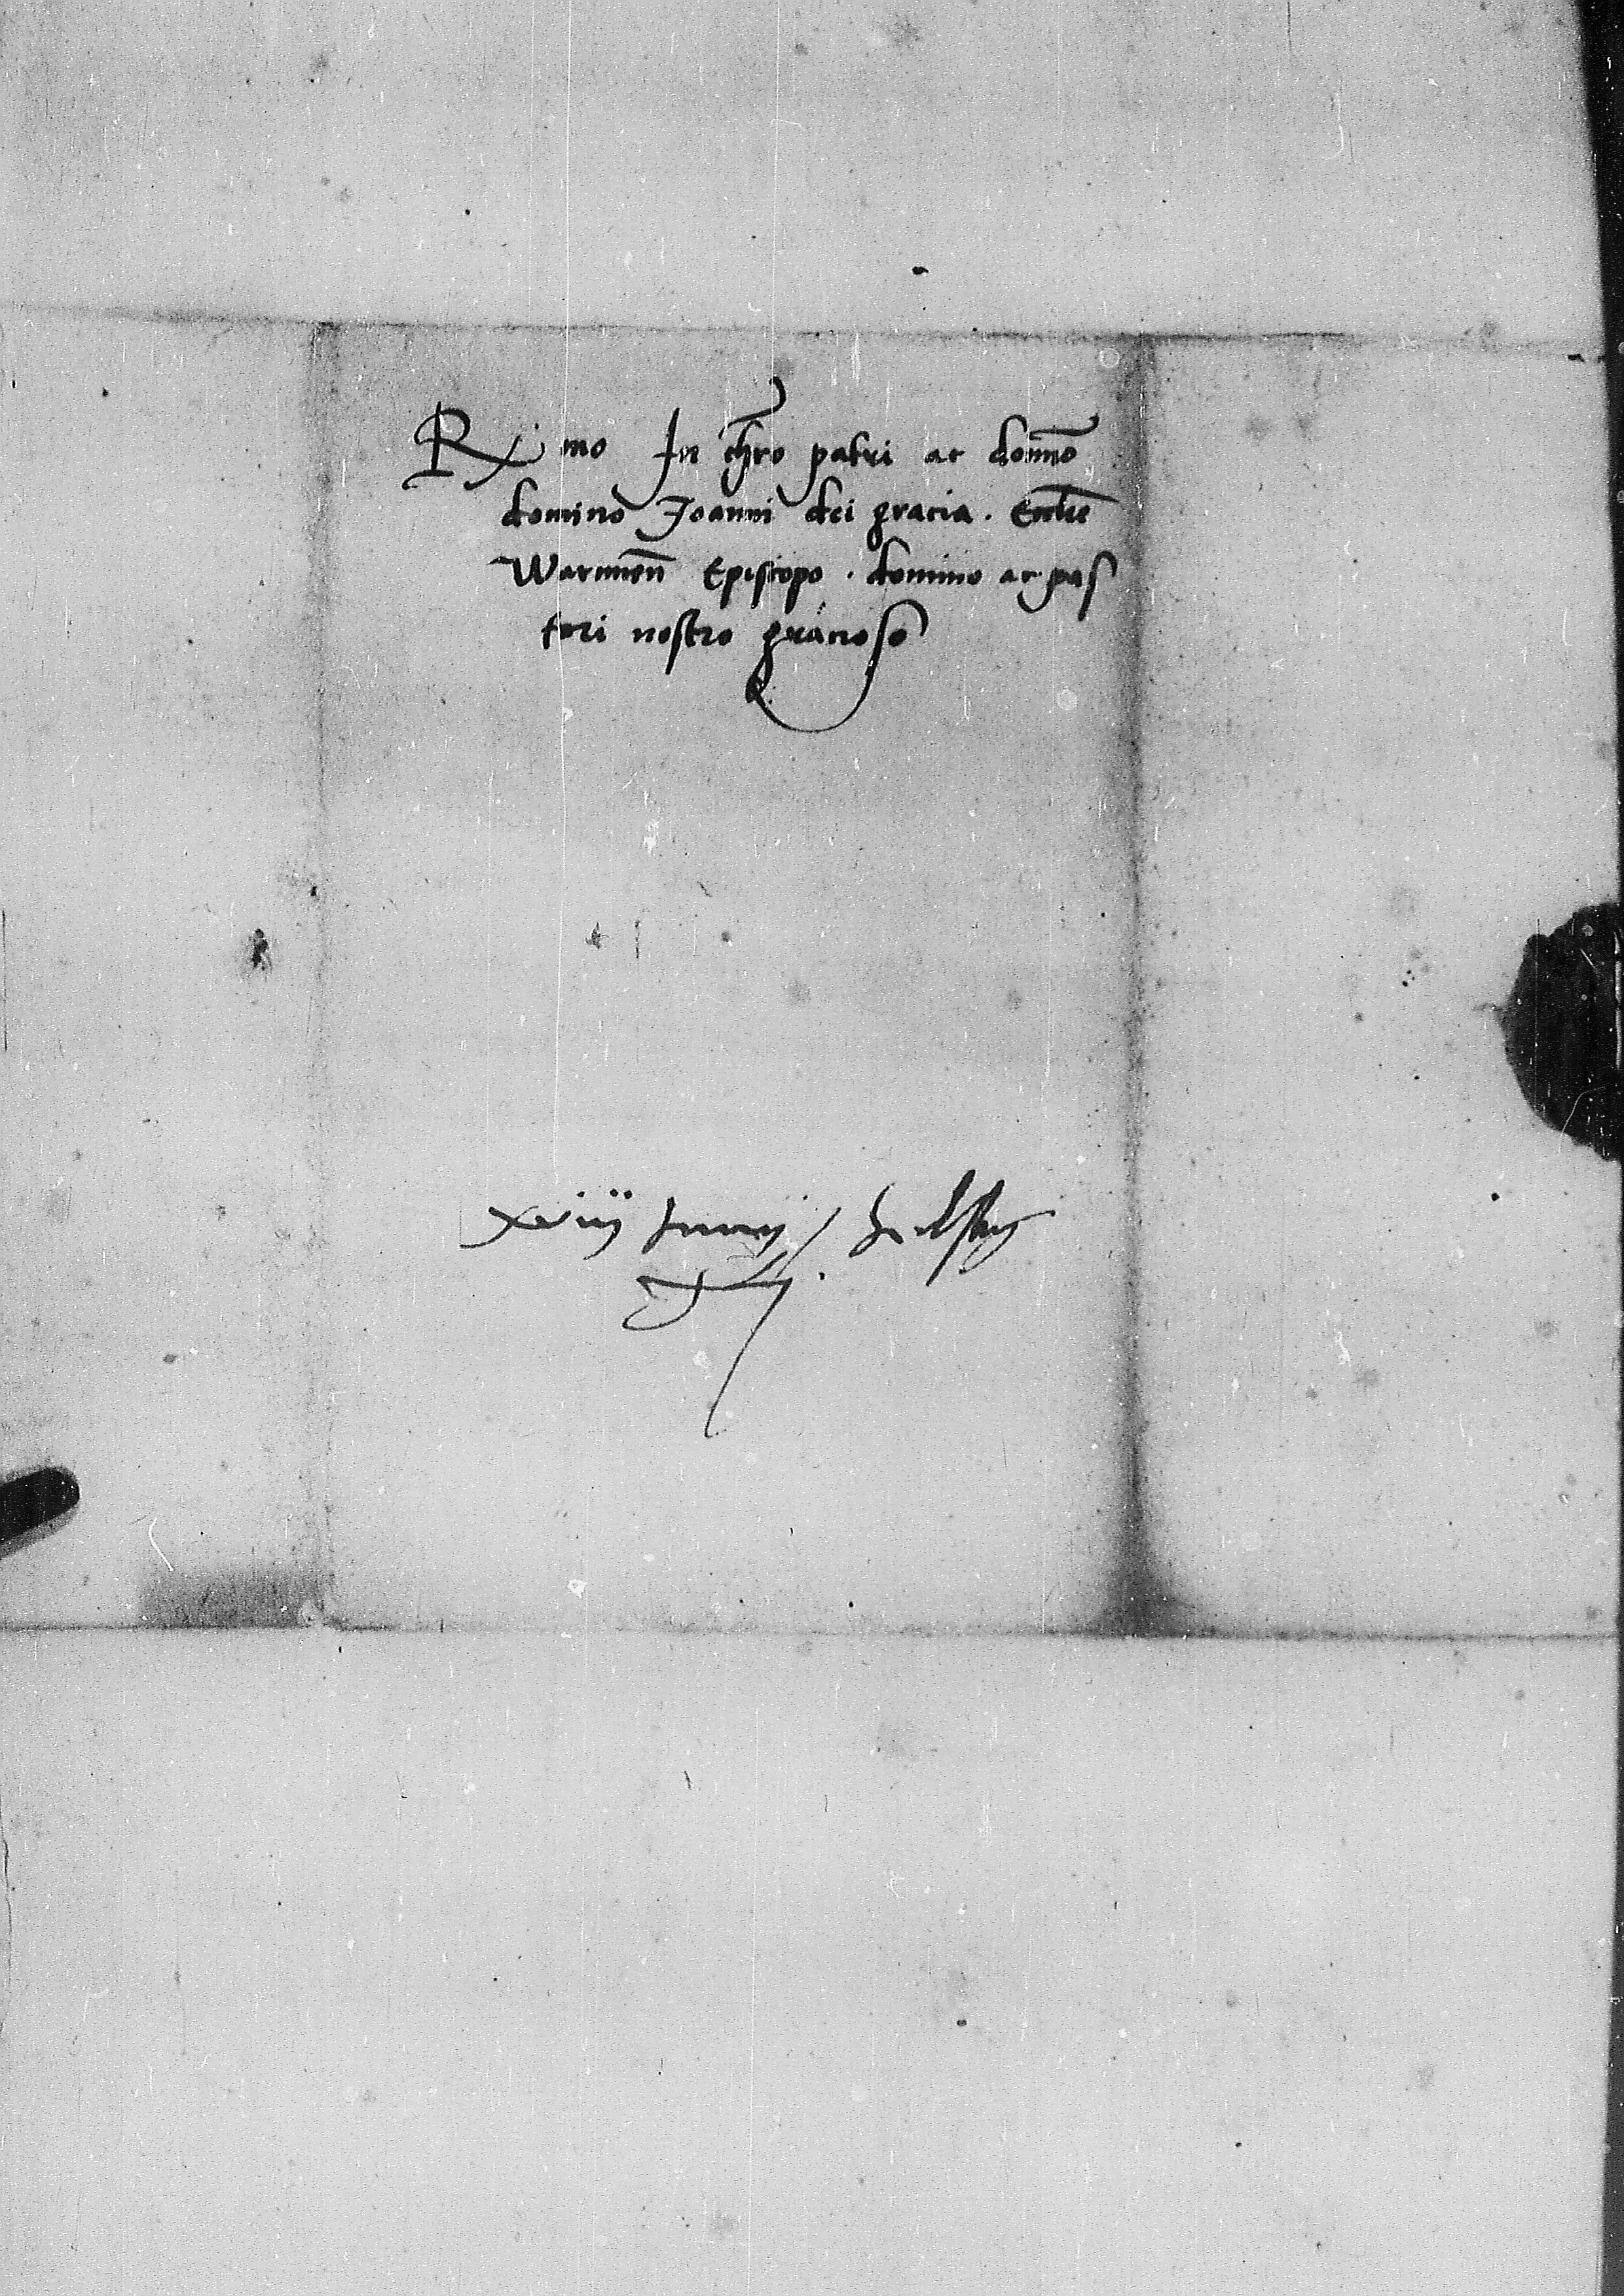 Rx mo In chro patri ac domno
domino Joanni dei gracia . Eccl̅ie
Warmien̅ Episcopo . domino ac pas
tori nostro gracioso
xviij Junij /